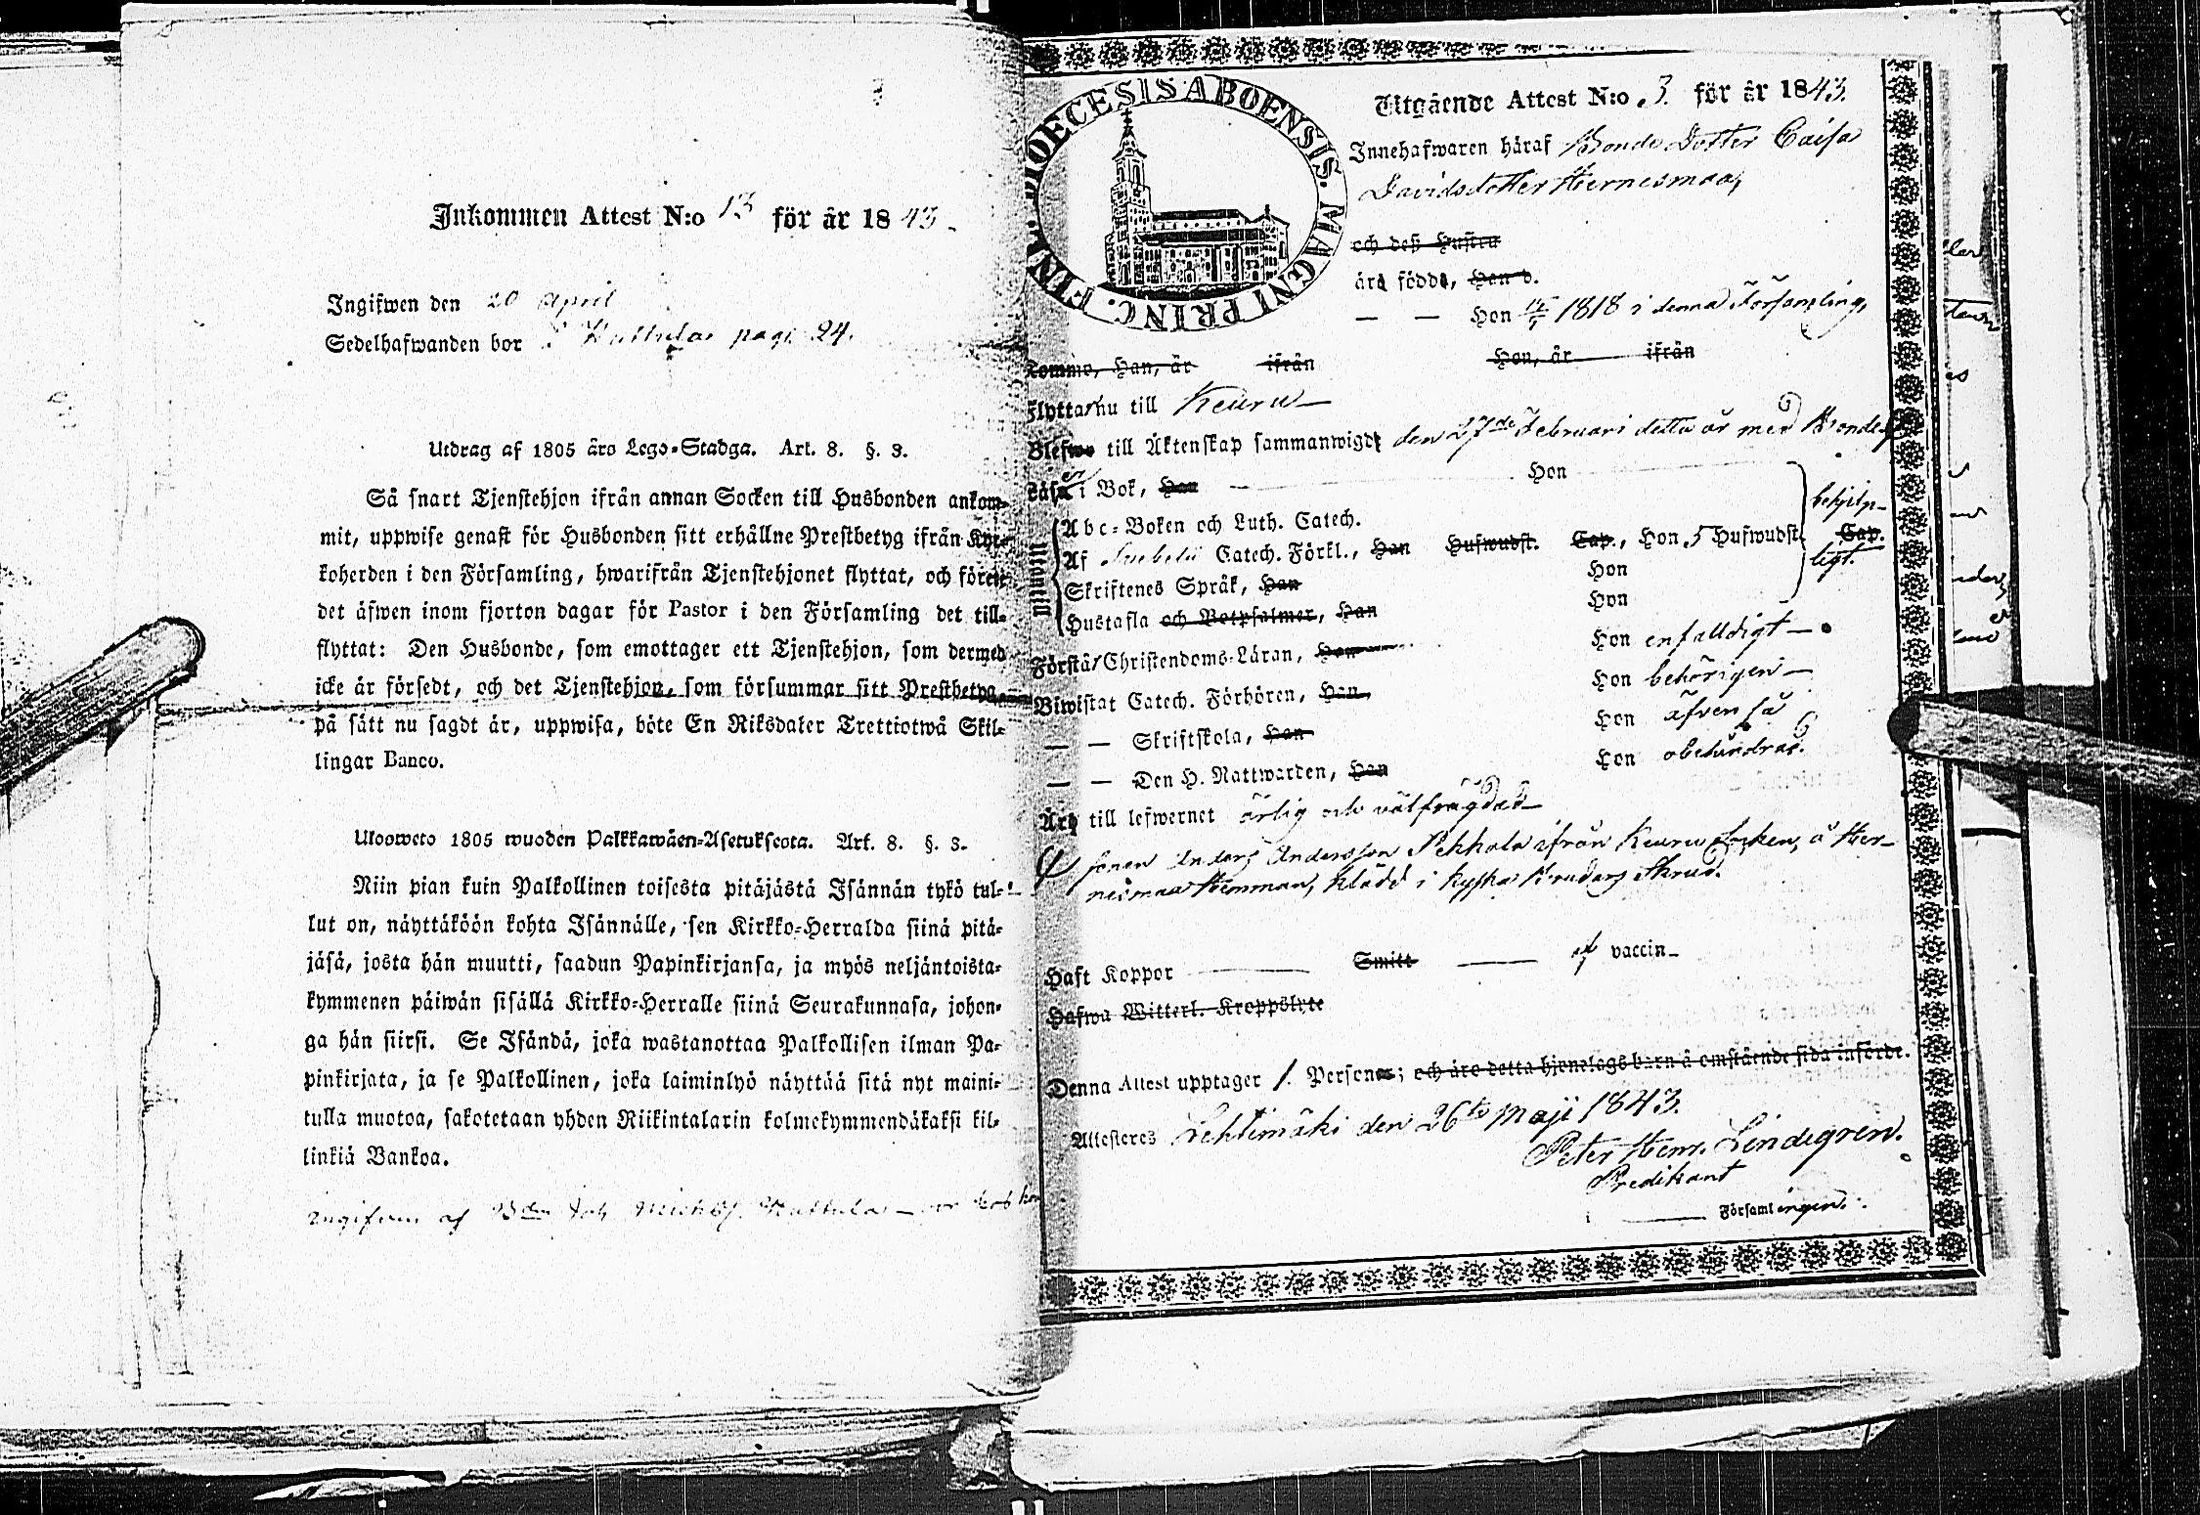 Inkommen Attest N:o 13 för år 1843.
Ingifwen den 20 April
Sedelhafwanden bor i pag. 24.
Utdrag af 1805 års Lego-Stadga. Art. 8. §. 3.
Så snart Tjenstehjon ifrån annan Socken till Husbonden ankom-
mit, uppwise genast för Husbonden sitt erhållne Prestbetyg ifrån Kyr-
koherden i den Församling, hwarifrån Tjenstehjonet flyttat, och förete
det äfwen inom fjorton dagar för Pastor i den Församling det till-
flyttat: Den Husbonde, som emottager ett Tjenstehjon, som dermed
icke är försedt, och det Tjenstehjon, som försummar sitt Prestbetyg
på sätt nu sagdt är, uppwisa, böte En Riksdaler Trettiotwå Skil-
lingar Banco.
Ulosweto 1805 wuoden Palkkawäen-Asetuksesta. Art. 8. §. 3.
Niin pian kuin Palkollinen toisesta pitäjästä Isännän tykö tul-
lut on, näyttäköön kohta Isännälle, sen Kirkko-Herralda siinä pitä-
jäsä, josta hän muutti, saadun Papinkirjansa, ja myös neljäntoista-
kymmenen päiwän sisällä Kirkko-Herralle siinä Seurakunnasa, johon-
ga hän siirsi. Se Isändä, joka wastanottaa Palkollisen ilman Pa-
pinkirjata, ja se Palkollinen, joka laiminlyö näyttää sitä nyt maini-
tulla muotoa, sakotetaan yhden Riikintalarin kolmekymmendäkaksi kil-
linkiä Bankoa.
Ingifven af
DIOECESIS ABOENSIS. MAGNI PRINC. FINL.
Utgående Attest N:o 3. för år 1843.
Innehafwaren häraf Bonde Dotter Caisa
Davidsdotter Hernesmaa,
och deß Hustru
äro födde, Han d.
— — Hon 1818 i denna Församling,
Komme, Han, är ifrån Hon, är ifrån
Flyttar nu till Keuru
Blefwo till Äktenskap sammanwigde den 27de Februari detta år med Bonde
Läser i Bok, Han Hon
Utantill
Abc-Boken och Luth. Catech.
Af Svebelii Catech. Förkl., Han Hufwudst. Cap., Hon 5 Hufwudst. Cap.
behjelp-
ligt.
Skriftenes Språk, Han Hon
Hustafla och Botpsalmer, Han Hon
Förstår Christendoms-Läran, Han Hon enfaldigt
Biwistat Catech. Förhören, Han Hon behörigen
— — Skriftskola, Han Hon äfven så
— — Den H. Nattwarden, Han Hon obehindrad.
Äro till lefwernet ärlig och välfrägdad
sonen Anders Andersson Pekkala ifrån Keuru Socken, å Her-
nesmaa Hemman, klädd i kyska Bruders Skrud.
Haft Koppor Smitt af vaccin
Hafwa Witterl. Kroppslyte
Denna Attest upptager 1. Personer; och äro detta hjonelags barn å omstående sida införde.
Attesteres Lehtimäki den 26te Maji 1843.
Peter Henr. Lindegren.
Predikant
i Församlingen.